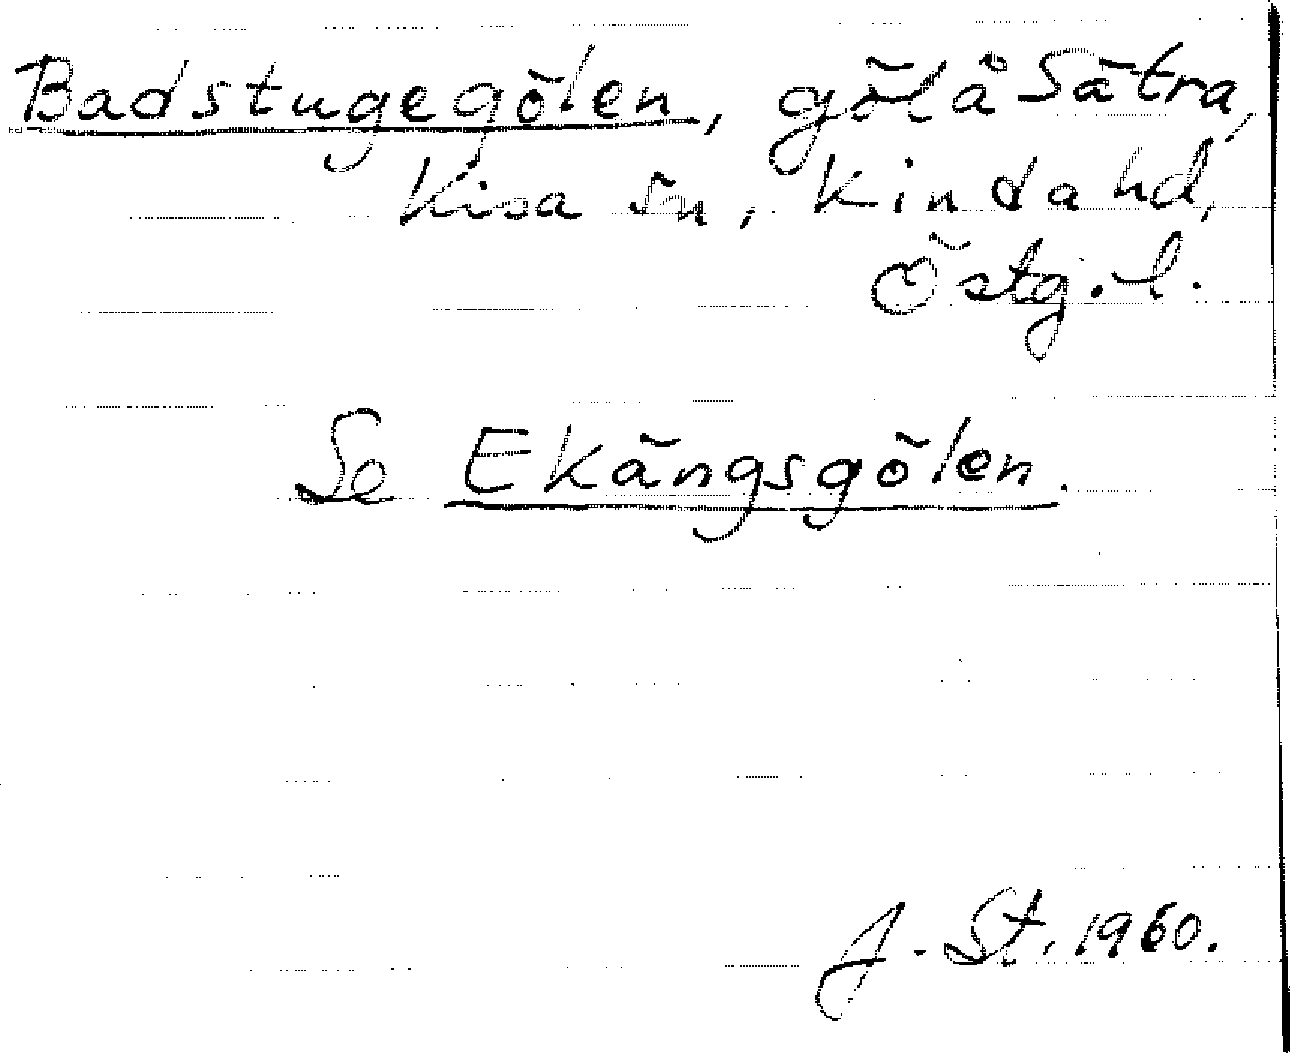 Badstugegölen, göl å Sätra,
Kisa sn, Kinda hd,
Östg. l.
Se Ekängsgölen.
J. St. 1960.